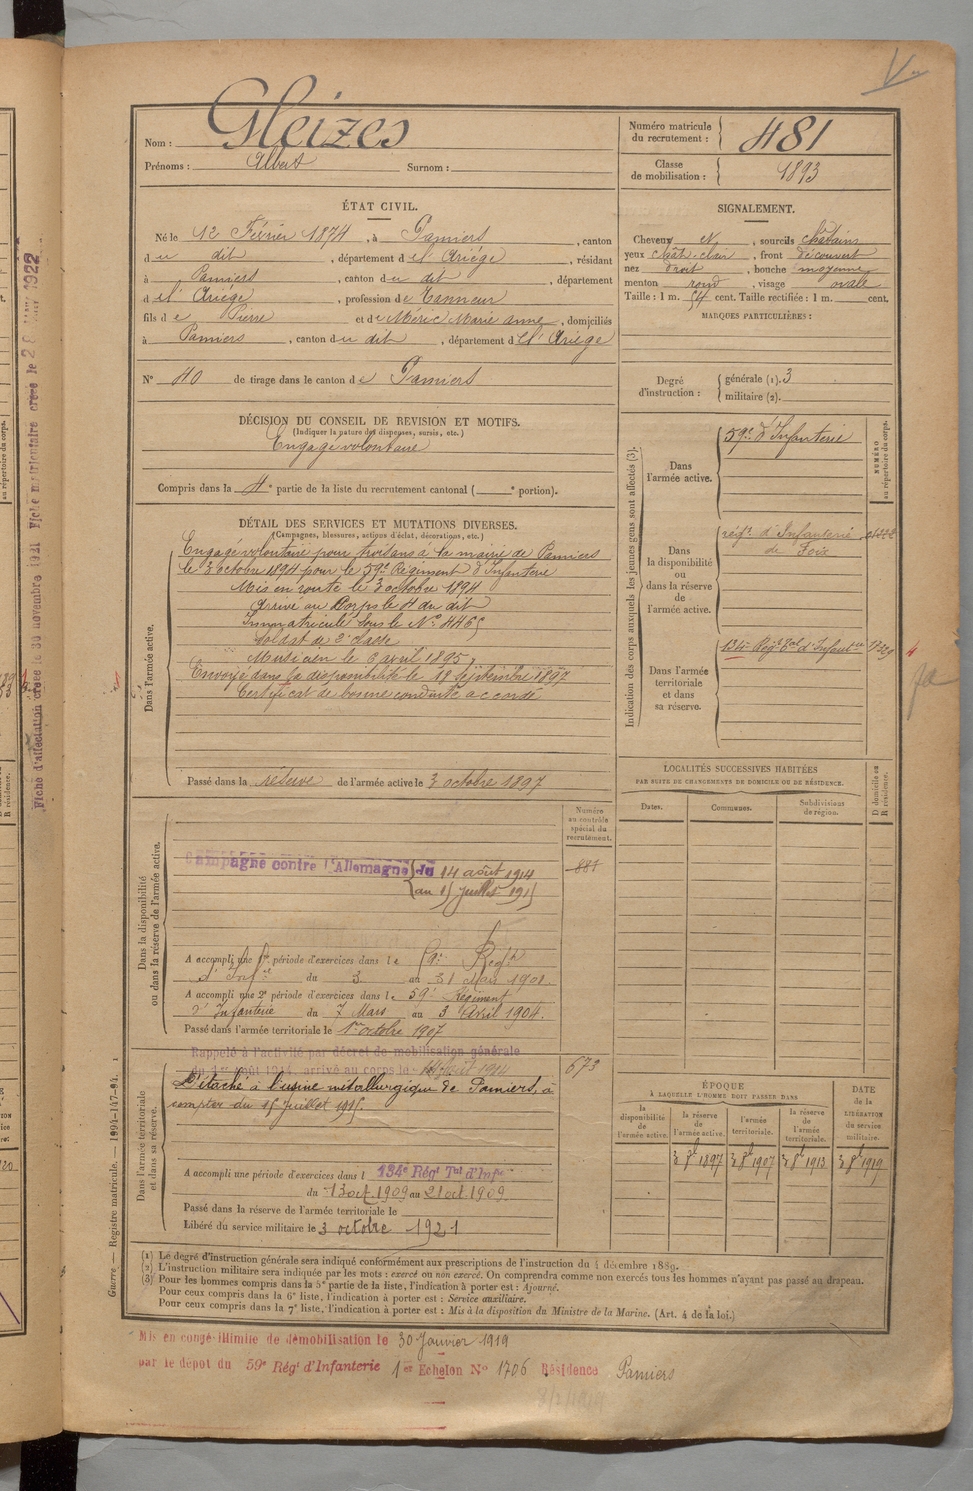 Nom : Gleizes
Prénoms : Albert Surnom :
Numéro matricule du recrutement : 481
Classe de mobilisation : 1893
ÉTAT CIVIL.
Né le 12 Février 1874, à Pamiers, canton
du dit, département de l'Ariège, résidant
à Pamiers, canton du dit, département
d el' Ariège, profession de Tanneur
fils de Pierre et de Méric Marie Anne, domiciliés
à Pamiers, canton du dit, département de l'Ariège
N° 40 de tirage dans le canton de Pamiers
SIGNALEMENT.
Cheveux N, sourcils chatains
yeux chât. clair, front découvert
nez droit, bouche moyenne
menton rond, visage ovale
Taille : 1 m. 54 cent. Taille rectifiée : 1 m. cent.
MARQUES PARTICULIÈRES :
Degré d'instruction : générale (1). 3
militaire (2).
DÉCISION DU CONSEIL DE REVISION ET MOTIFS.
(Indiquer la nature des dispenses, sursis, etc.)
Engagé volontaire
Compris dans la 4e partie de la liste du recrutement cantonal ( e portion).
DÉTAIL DES SERVICES ET MUTATIONS DIVERSES.
(Campagnes, blessures, actions d'éclat, décorations, etc.)
Dans l'armée active.
Engagé volontaire pour trois ans à la mairie de Pamiers
le 3 octobre 1894 pour le 59e Régiment d'Infanterie
Mis en route le 3 octobre 1894
Arrivé au Corps le 4 du dit
Immatriculé sous le N° 4465
Soldat de 2e classe
Musicien le 6 avril 1895
Envoyé dans la disponibilité le 18 Septembre 1897
Certificat de bonne conduite accordé
Passé dans la réserve de l'armée active le 3 octobre 1897
Indication des corps auxquels les jeunes gens sont affectés (3).
NUMÉRO au répertoire du corps.
Dans l'armée active.
59e d'Infanterie
Dans la disponibilité ou dans la réserve de l'armée active.
régt d'Infanterie
de Foix
Dans l'armée territoriale et dans sa réserve.
134e Régt Tal d'Infantie
LOCALITÉS SUCCESSIVES HABITÉES
PAR SUITE DE CHANGEMENTS DE DOMICILE OU DE RÉSIDENCE.
D domicile ou R résidence.
Dates. Communes. Subdivisions de région.
Dans la disponibilité ou dans la réserve de l'armée active.
Numéro au contrôle spécial du recrutement.
Campagne contre l'Allemagne du 14 août 1914
au 15 juillet 1915
A accompli une 1re période d'exercices dans le
d'Infie du 3 au 31 Mai 1901
A accompli une 2e période d'exercices dans le 59e Régiment
d'Infanterie du 7 Mars au 3 Avril 1904.
Passé dans l'armée territoriale le 1er octobre 1907
Dans l'armée territoriale et dans sa réserve.
673
Rappelé à l'activité par décret de mobilisation générale
du 1er août 1914, arrivé au corps le 14 août 1914
Détaché à l'usine métallurgique de Pamiers, à
compter du 15 juillet 1915.
A accompli une période d'exercices dans l 134e Régt Tal d'Infie
du 13 oct. 1909 au 21 oct. 1909
Passé dans la réserve de l'armée territoriale le
Libéré du service militaire le 3 octobre 1921
ÉPOQUE
À LAQUELLE L'HOMME DOIT PASSER DANS
DATE de la LIBÉRATION du service militaire.
la disponibilité de l'armée active. la réserve de l'armée active. l'armée territoriale. la réserve de l'armée territoriale.
3 8e 1897 3 8e 1907 3 8e 1913 3 8e 1919
(1) Le degré d'instruction générale sera indiqué conformément aux prescriptions de l'instruction du 4 décembre 1889.
(2) L'instruction militaire sera indiquée par les mots : exercé ou non exercé. On comprendra comme non exercés tous les hommes n'ayant pas passé au drapeau.
(3) Pour les hommes compris dans la 5e partie de la liste, l'indication à porter est : Ajourné.
Pour ceux compris dans la 6e liste, l'indication à porter est : Service auxiliaire.
Pour ceux compris dans la 7e liste, l'indication à porter est : Mis à la disposition du Ministre de la Marine. (Art. 4 de la loi.)
Mis en congé illimité de démobilisation le 30 Janvier 1919
par le dépôt du 59e Régt d'Infanterie 1er Echelon N° 1706 Résidence Pamiers
Guerre. — Registre matricule. — 1994-147-94.
Fiche d'affectation créée le 30 novembre 1921 Fiche matriculaire créée le